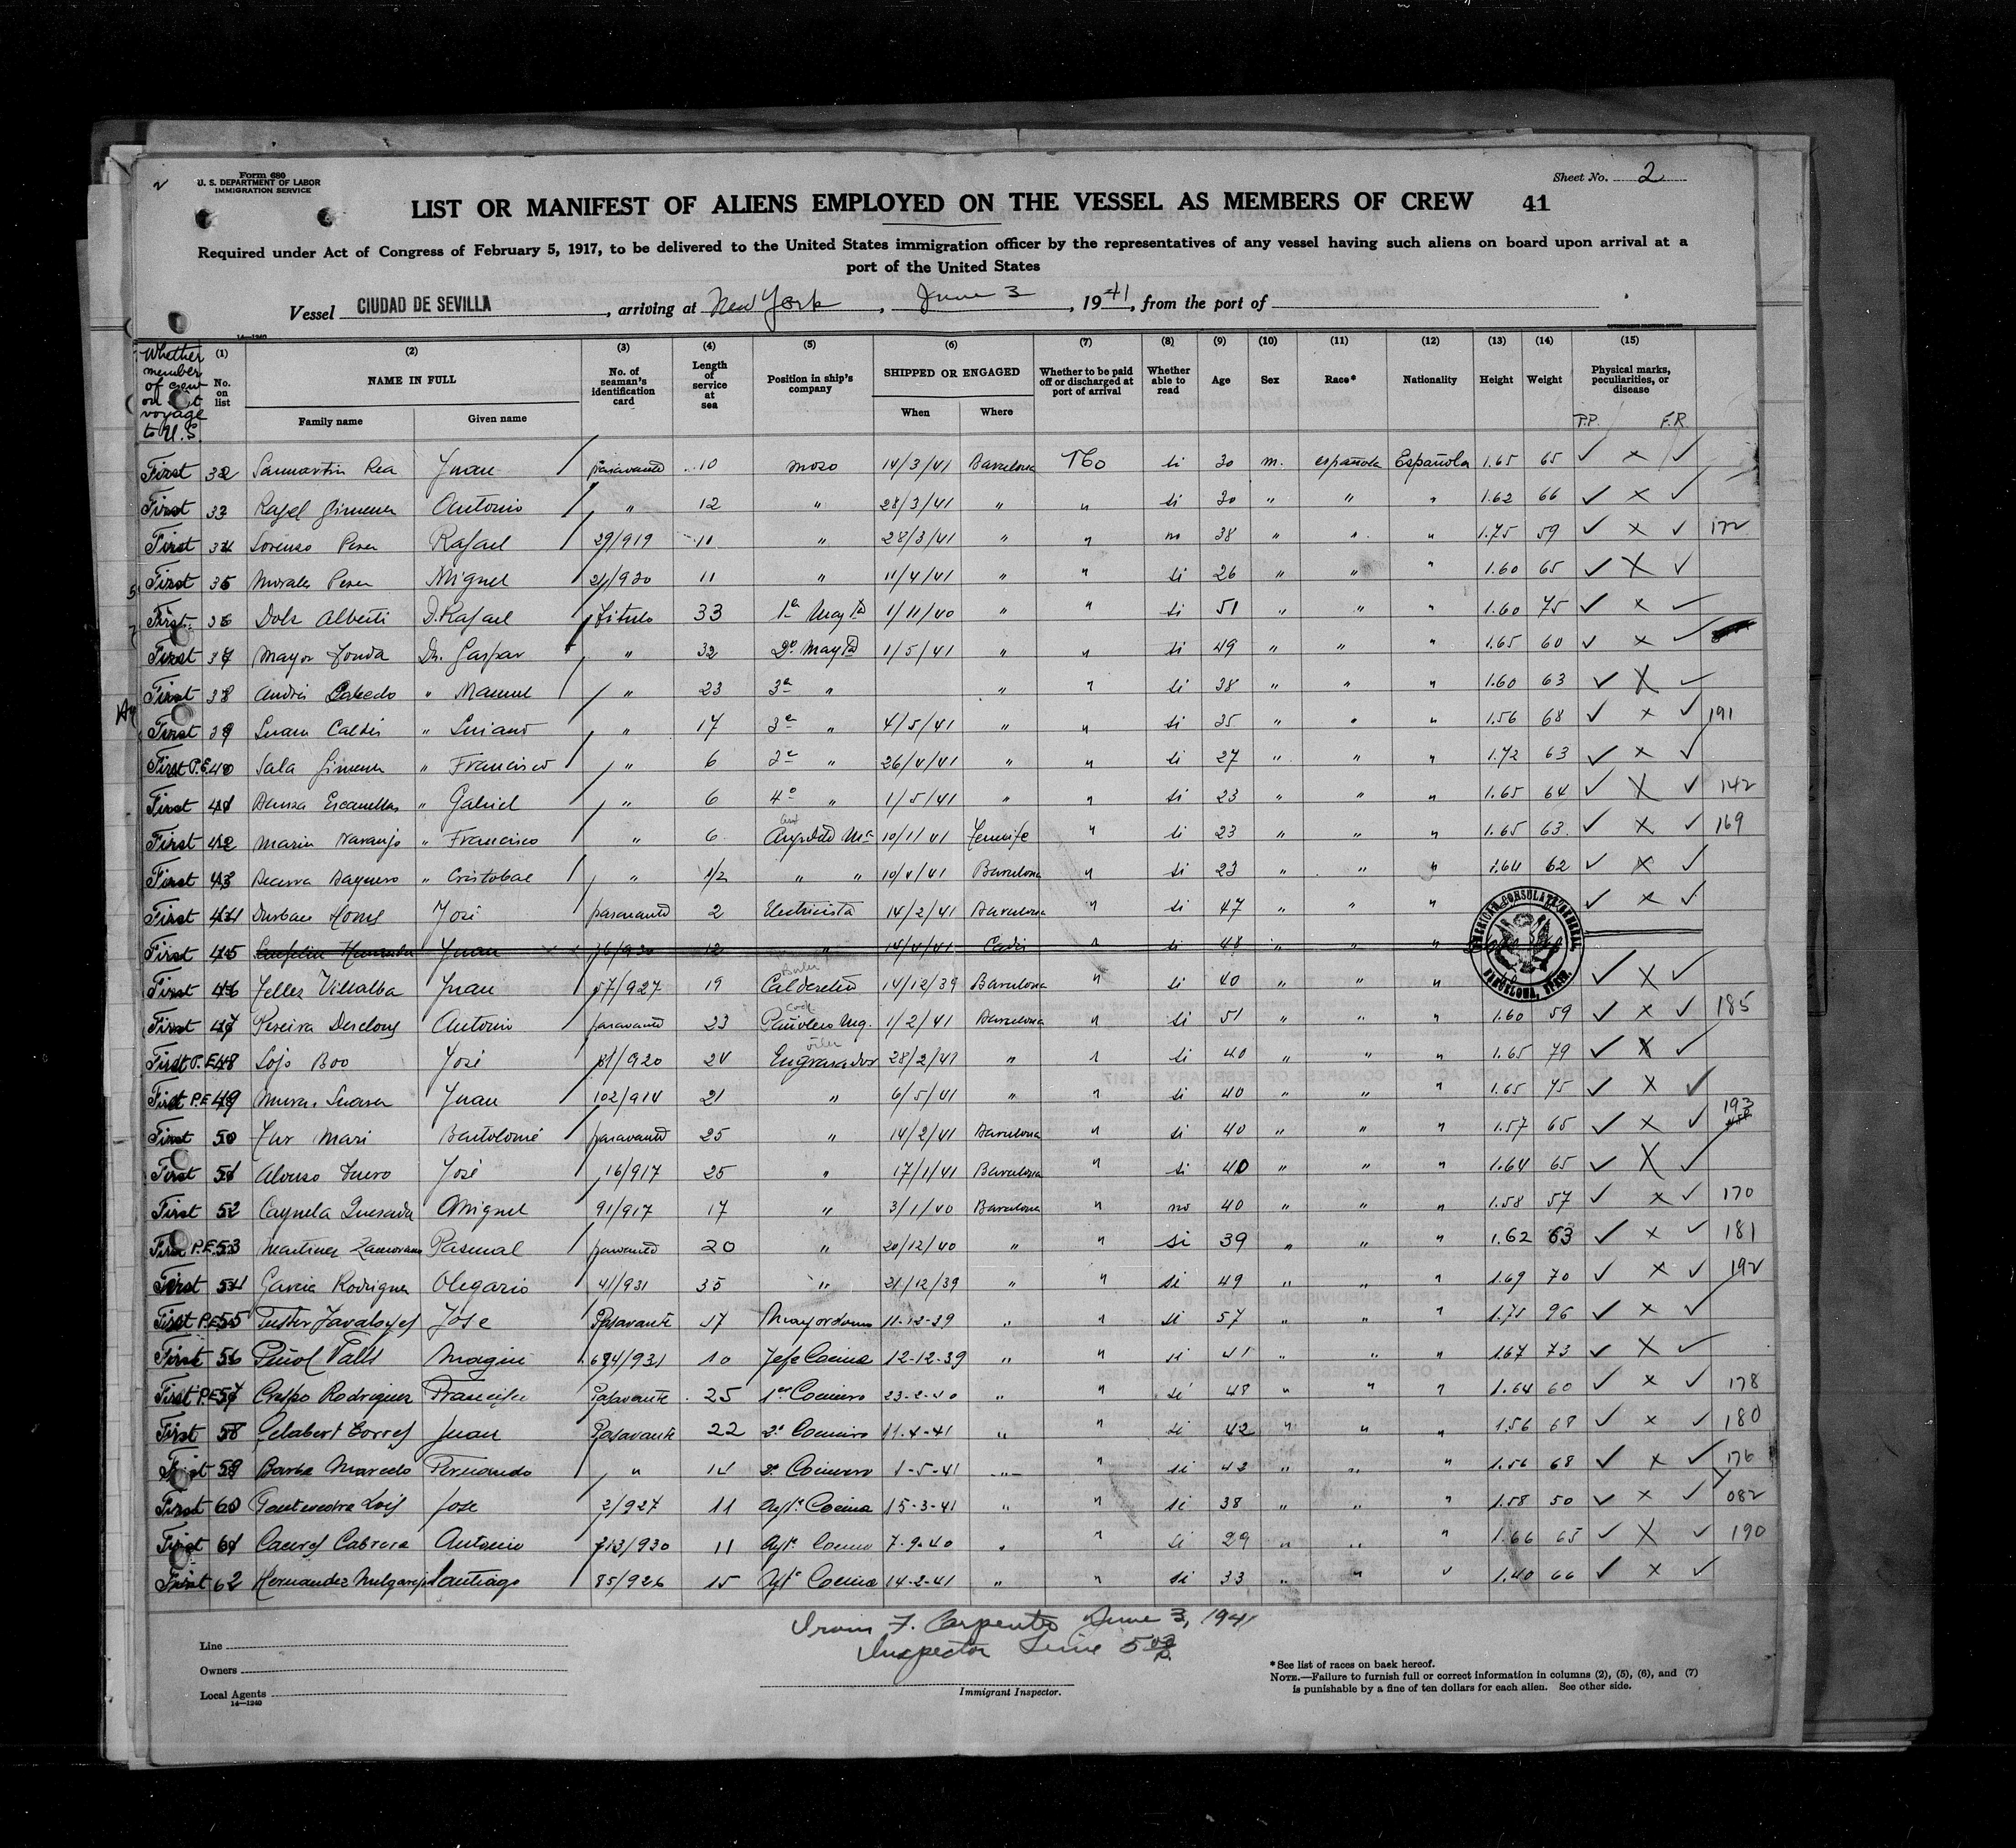 Form 680
U. S. DEPARTMENT OF LABOR
IMMIGRATION SERVICE
Sheet No. 2
LIST OR MANIFEST OF ALIENS EMPLOYED ON THE VESSEL AS MEMBERS OF CREW 41
Required under Act of Congress of February 5, 1917, to be delivered to the United States immigration officer by the representatives of any vessel having such aliens on board upon arrival at a
port of the United States
Vessel CIUDAD DE SEVILLA, arriving at New York, June 3, 1941, from the port of
14—1240
Whether member of crew on last voyage to U.S. (1) No. on list (2) NAME IN FULL Family name Given name (3) No. of seaman's identification card (4) Length of service at sea (5) Position in ship's company (6) SHIPPED OR ENGAGED When Where (7) Whether to be paid off or discharged at port of arrival (8) Whether able to read (9) Age (10) Sex (11) Race* (12) Nationality (13) Height (14) Weight (15) Physical marks, peculiarities, or disease P.P. F.R.
First 32 Sanmartin Rea Juan pasavante 10 moso 14/3/41 Barcelona No si 30 m. española Española 1.65 65 ✓ x ✓
First 33 Gimenez Antonio " 12 " 28/3/41 " " si 30 " " " 1.62 66 ✓ x ✓
First 34 Lorenzo Perez Rafael 29/919 11 " 28/3/41 " " no 38 " " " 1.75 59 ✓ x ✓ 172
First 35 Morales Perez Miguel 21/930 11 " 11/4/41 " " si 26 " " " 1.60 65 ✓ x ✓
First 36 Dols Alberti D. Rafael titulo 33 1º Maqta 1/11/40 " " si 51 " " " 1.60 75 ✓ x ✓
First 37 Mayor Dn. Gaspar " 32 2º Maqta 1/5/41 " " si 49 " " " 1.65 60 ✓ x ✓
First 38 Andres " Manuel " 23 3º " " " si 38 " " " 1.60 63 ✓ x ✓
First 39 " " 17 3º " 4/5/41 " " si 35 " " " 1.56 68 ✓ x ✓ 191
First P.E. 40 Sala Gimenez " Francisco " 6 3º " 26/4/41 " " si 27 " " " 1.72 63 ✓ x ✓
First 41 Escanellas " Gabriel " 6 4º " 1/5/41 " " si 23 " " " 1.65 64 ✓ x ✓ 142
First 42 Marin Naranjo " Francisco " 6 10/1/41 Tenerife " si 23 " " " 1.65 63 ✓ x ✓ 169
First 43 Becerra Baquero " Cristobal " 1/2 " " 10/4/41 Barcelona " si 23 " " " 1.64 62 ✓ x ✓
First 44 Jose pasavante 2 Electricista 14/2/41 Barcelona " si 47 " " " ✓ x ✓
First 45 Juan 76/930 12 " 14/4/41 Cadiz " si 48 " " "
AMERICAN CONSULATE GENERAL BARCELONA, SPAIN.
First 46 Tellez Villalba Juan 57/927 19 Calderetero 14/12/39 Barcelona " si 40 " " " ✓ x ✓
First 47 Pereira Antonio pasavante 23 Pañolero Mq. 1/2/41 Barcelona " si 51 " " " 1.60 59 ✓ x ✓ 185
First P.E. 48 Lojo Boo Jose 81/920 24 Engrasador 28/2/41 " " si 40 " " " 1.65 79 ✓ x ✓
First P.E. 49 Juan 102/914 21 " 6/5/41 " " si 40 " " " 1.65 75 ✓ x ✓
First 50 Mari Bartolomé pasavante 25 " 14/2/41 Barcelona " si 40 " " " 1.57 65 ✓ x ✓ 193
First 51 Alonso José 16/917 25 " 17/1/41 Barcelona " si 40 " " " 1.64 65 ✓ x ✓
First 52 Caynela Quesada Miguel 91/917 17 " 3/1/40 Barcelona " no 40 " " " 1.58 57 ✓ x ✓ 170
First P.E. 53 Martinez Zamorano Pascual pasavante 20 " 20/12/40 " " si 39 " " " 1.62 63 ✓ x ✓ 181
First 54 Garcia Rodriguez Olegario 41/931 35 " 21/12/39 " " si 49 " " " 1.69 70 ✓ x ✓ 192
First P.E. 55 Jose Pasavante 17 Mayordomo 11-12-39 " " si 57 " " " 1.75 96 ✓ x ✓
First 56 Piñol Valls Magin 674/931 10 Jefe Cocina 12-12-39 " " si 41 " " " 1.67 73 ✓ x ✓
First P.E. 57 Crespo Rodriguez Francisco Pasavante 25 1er Cocinero 23-2-40 " " si 48 " " " 1.64 60 ✓ x ✓ 178
First 58 Gelabert Torres Juan Pasavante 22 2º Cocinero 11-4-41 " " si 42 " " " 1.56 68 ✓ x ✓ 180
First 59 Barba Marcelo Fernando " 14 2º Cocinero 1-5-41 " " si 42 " " " 1.56 68 ✓ x ✓ 176
First 60 Jose 2/927 11 Aytº Cocina 15-3-41 " " si 38 " " " 1.58 50 ✓ x ✓ 082
First 61 Caceres Cabrera Antonio 713/930 11 Aytº Cocina 7-9-40 " " si 29 " " " 1.66 65 ✓ x ✓ 190
First 62 Hernandez Melgarejo Santiago 85/926 15 Aytº Cocina 14-2-41 " " si 33 " " " 1.40 66 ✓ x ✓
Irwin F. Carpenter June 3, 1941
Inspector
Line
Owners
Local Agents
14—1240
Immigrant Inspector.
*See list of races on back hereof.
NOTE.—Failure to furnish full or correct information in columns (2), (5), (6), and (7)
is punishable by a fine of ten dollars for each alien. See other side.